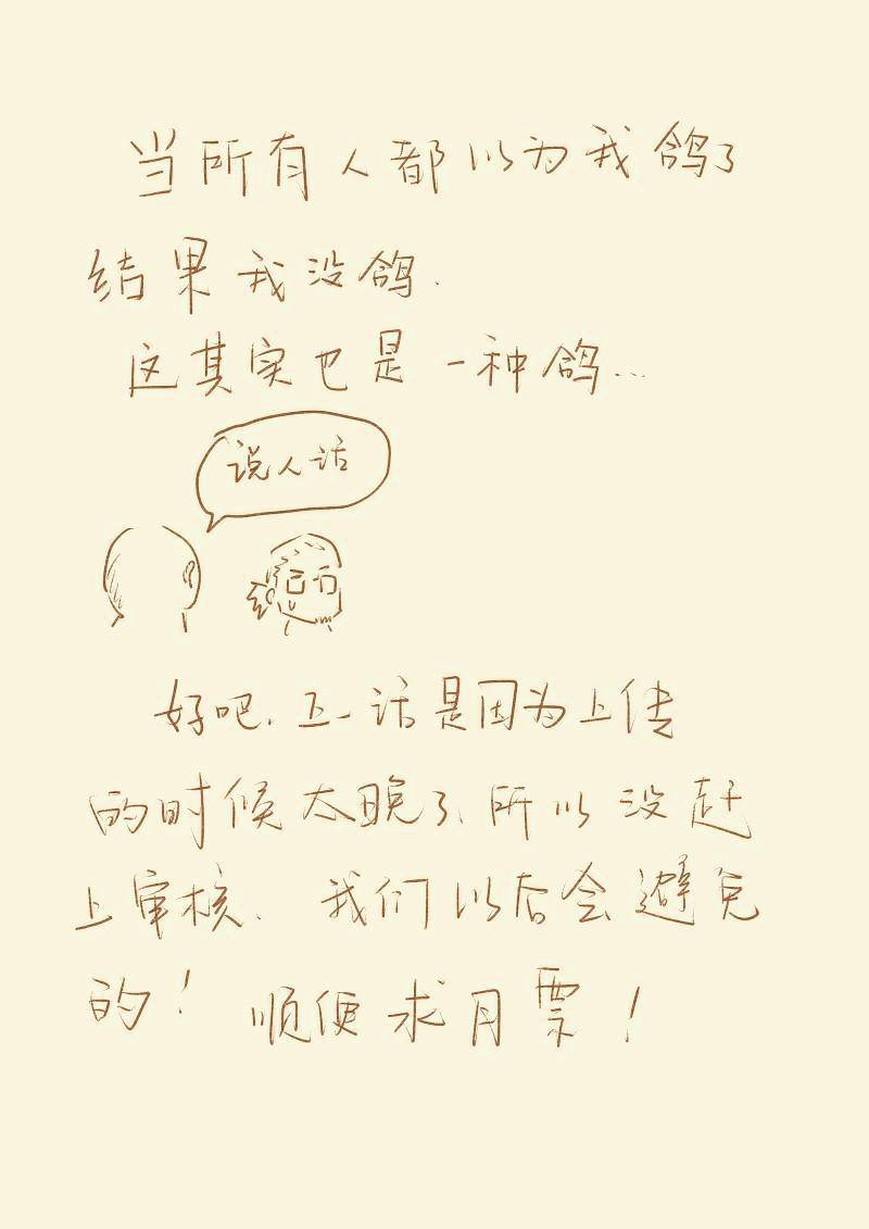 当所有人都以为我鸽了
结果我没鸽.
这其实也是一种鸽...
说人话
好吧.上一话是因为上传
的时候太晚了、所以没赶
上审核. 我们以后会避免
的! 顺便求月票!